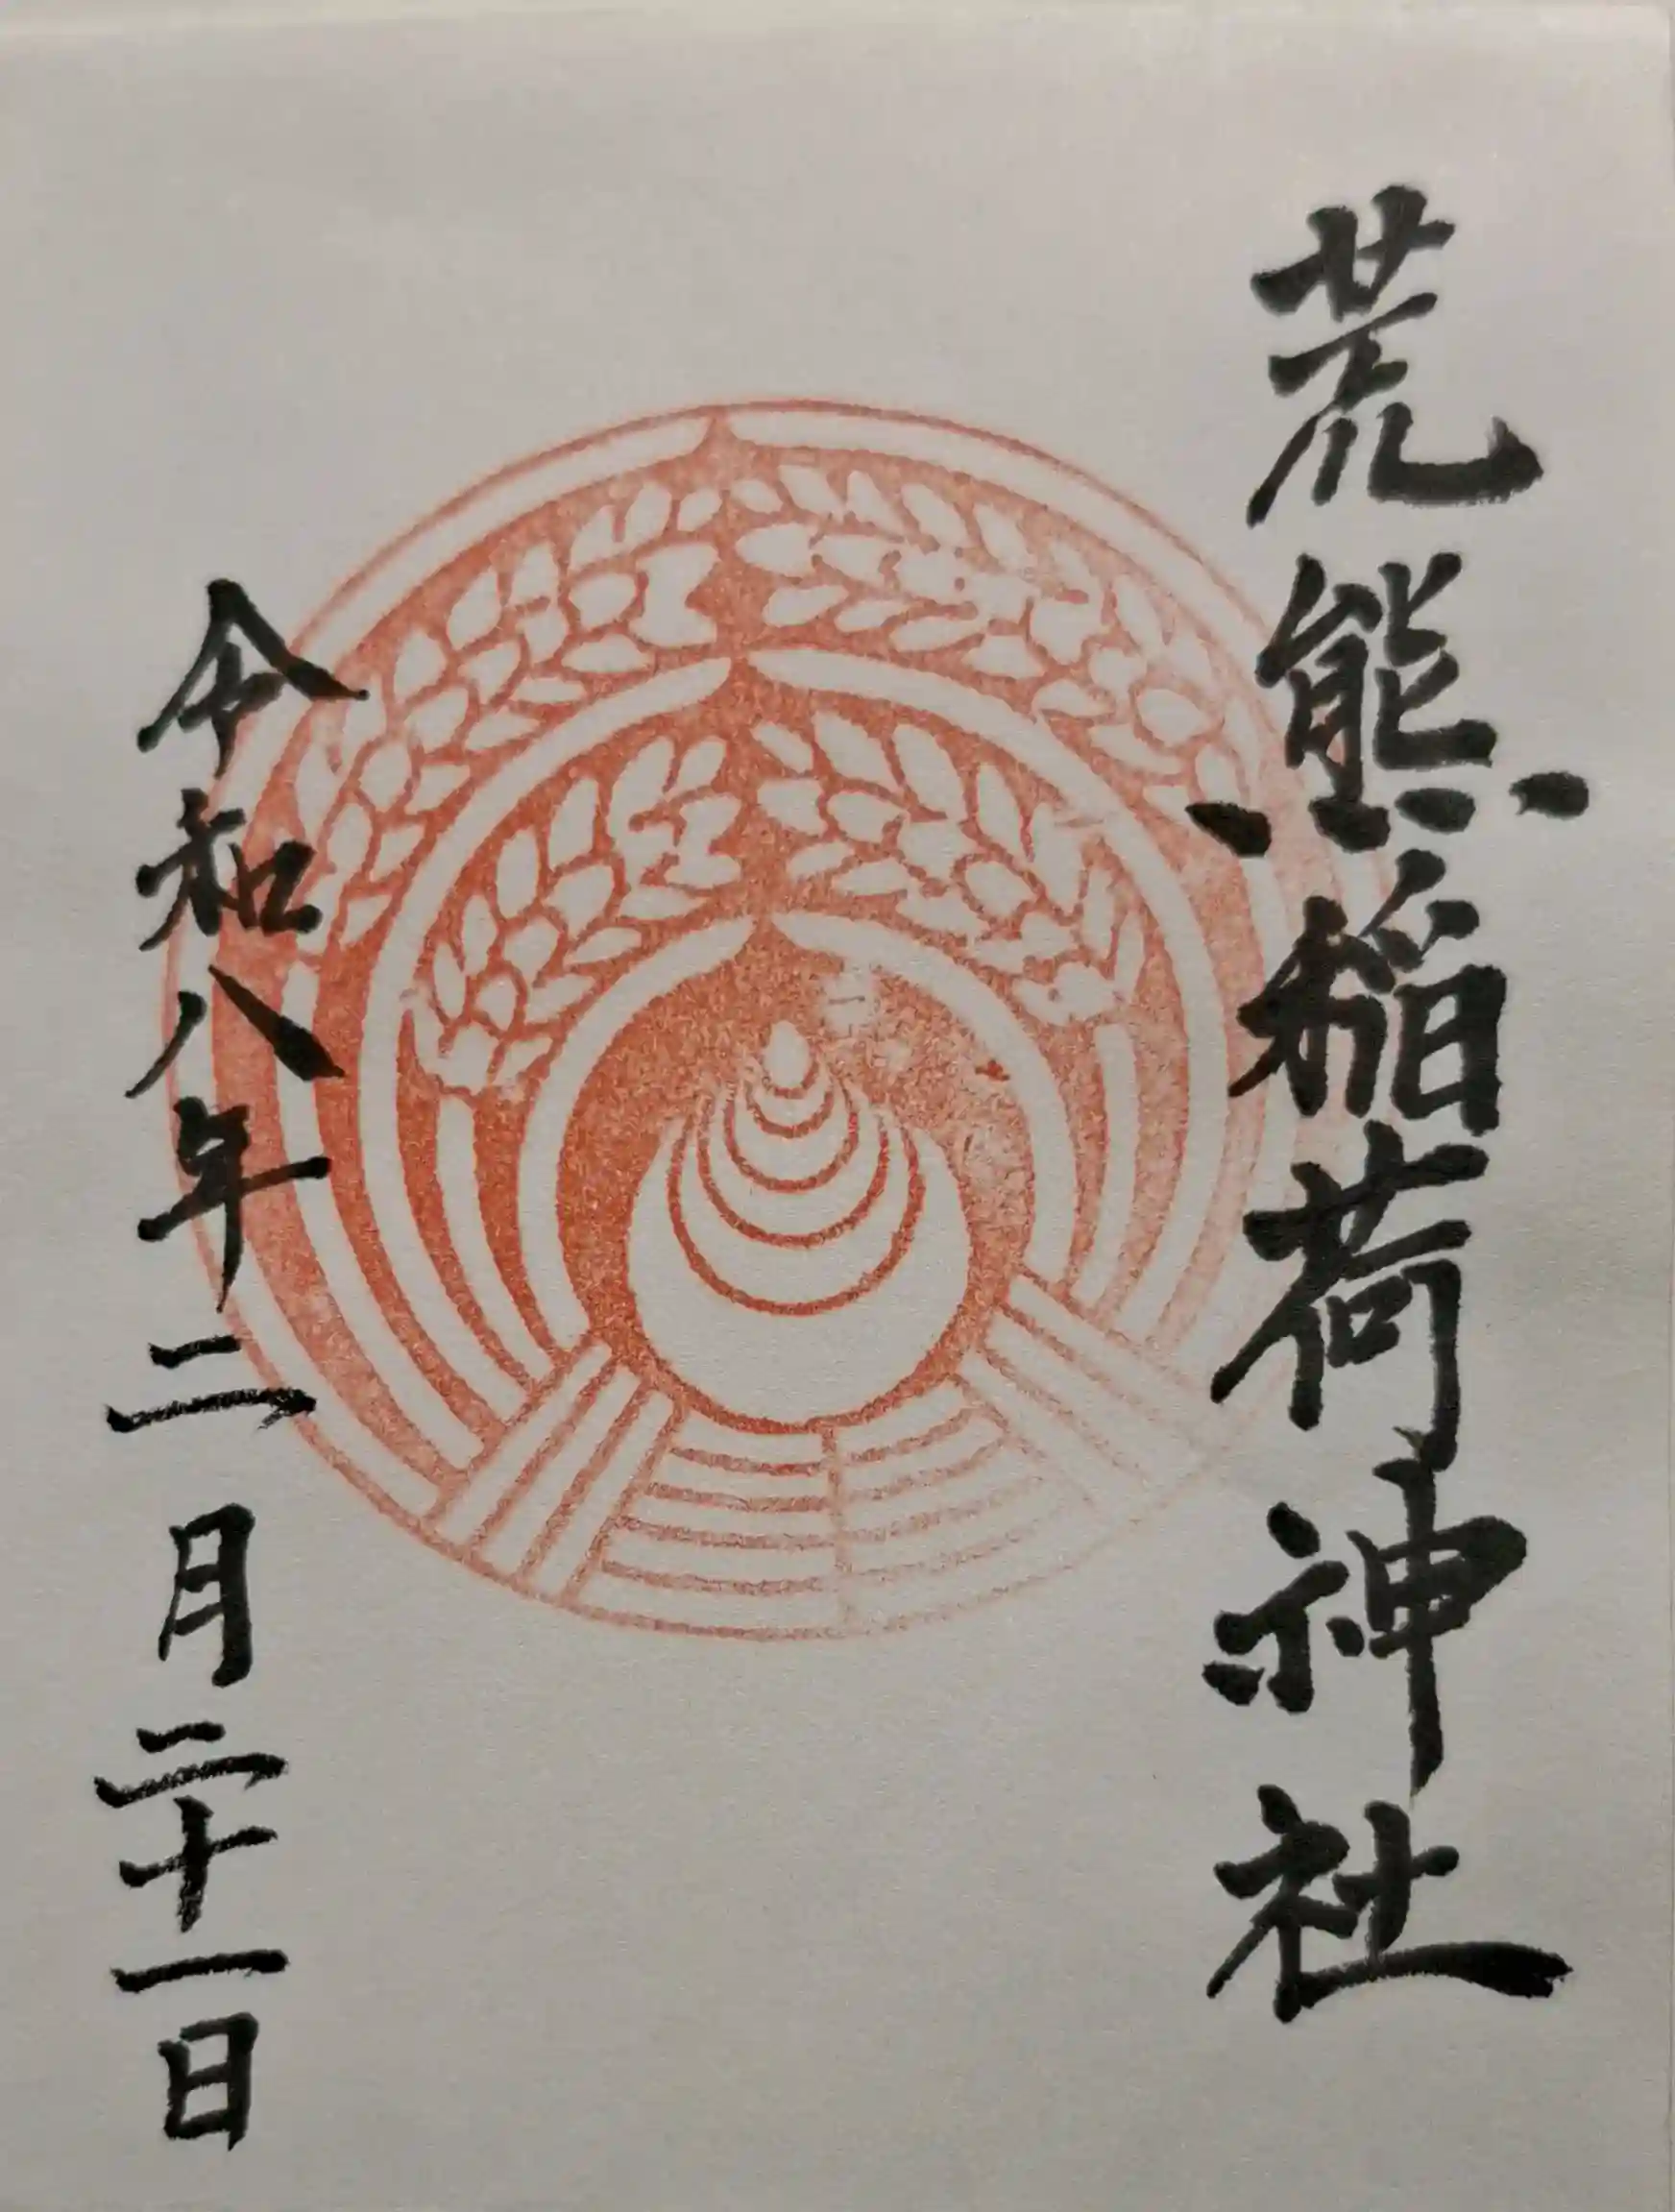 荒熊稲荷神社
令和八年二月二十一日